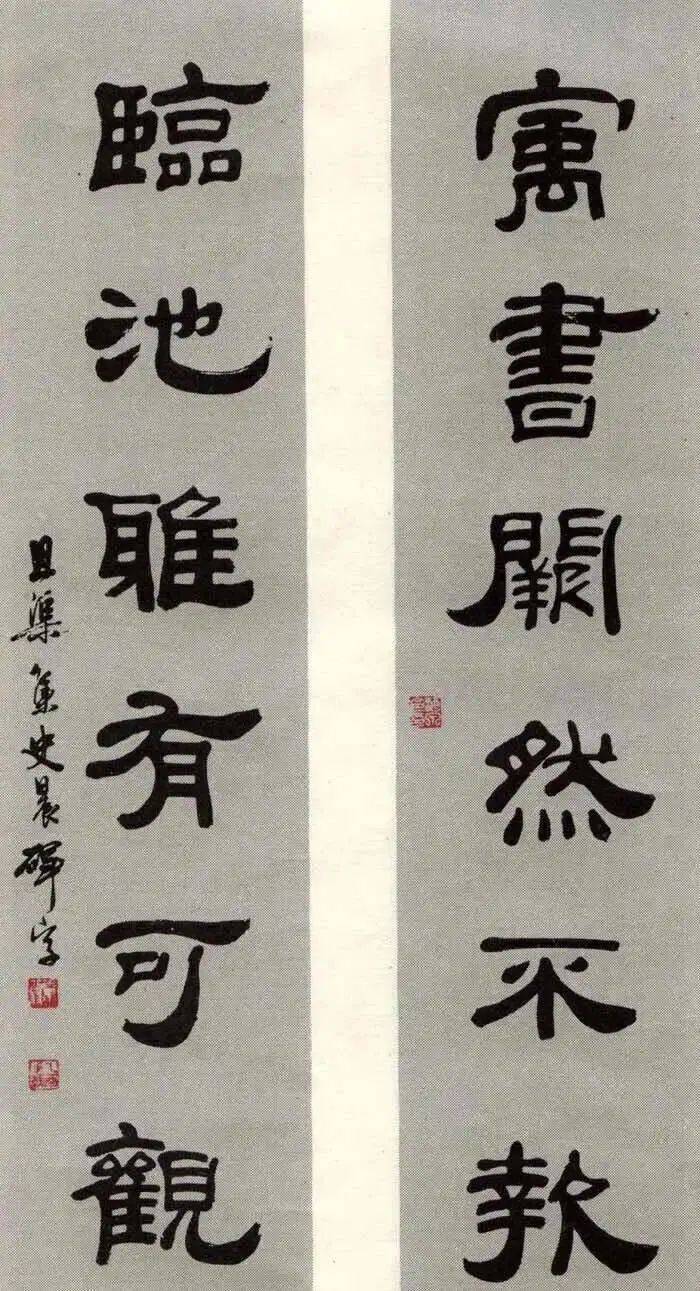 寓書闕然不報
臨池雅有可觀
且渠集史晨碑字